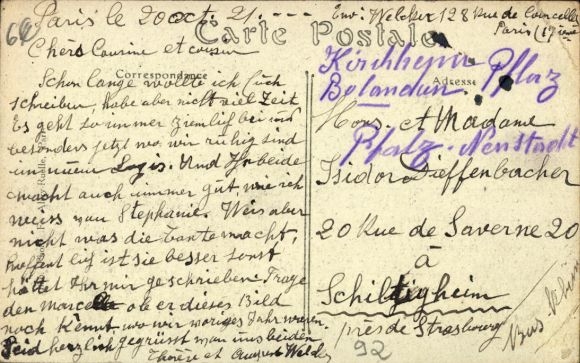 Paris le 20 oct. 21.
Env. Welcker 128 Rue de Courcelles
Paris (17ième
60
Chers Cousine et cousin
Carte Postale
Correspondance
Adresse
Schon lange wollte ich Euch
schreiben, habe aber nicht viel Zeit
Es geht so immer ziemlich bei uns
besonders jetzt wo wir ruhig sind
im neuen Logis. Und Ihr beide
macht auch immer gut, wie ich
weiss von Stephanie. Weis aber
nicht was die Tante macht,
hoffentlich ist sie besser sonst
hättet Ihr mir geschrieben. Frage
den Marcel ob er dieses Bild
noch kennt, wo wir voriges Jahr waren.
Seid herzlich gegrüsst von uns beiden
et August
Kirchheim
Bolanden Pfalz
Pfalz-Neustadt
Mons. et Madame
Isidor Dieffenbacher
20 Rue de Saverne 20
à
Schiltigheim
près de Strasbourg
Bas-Rhin
92